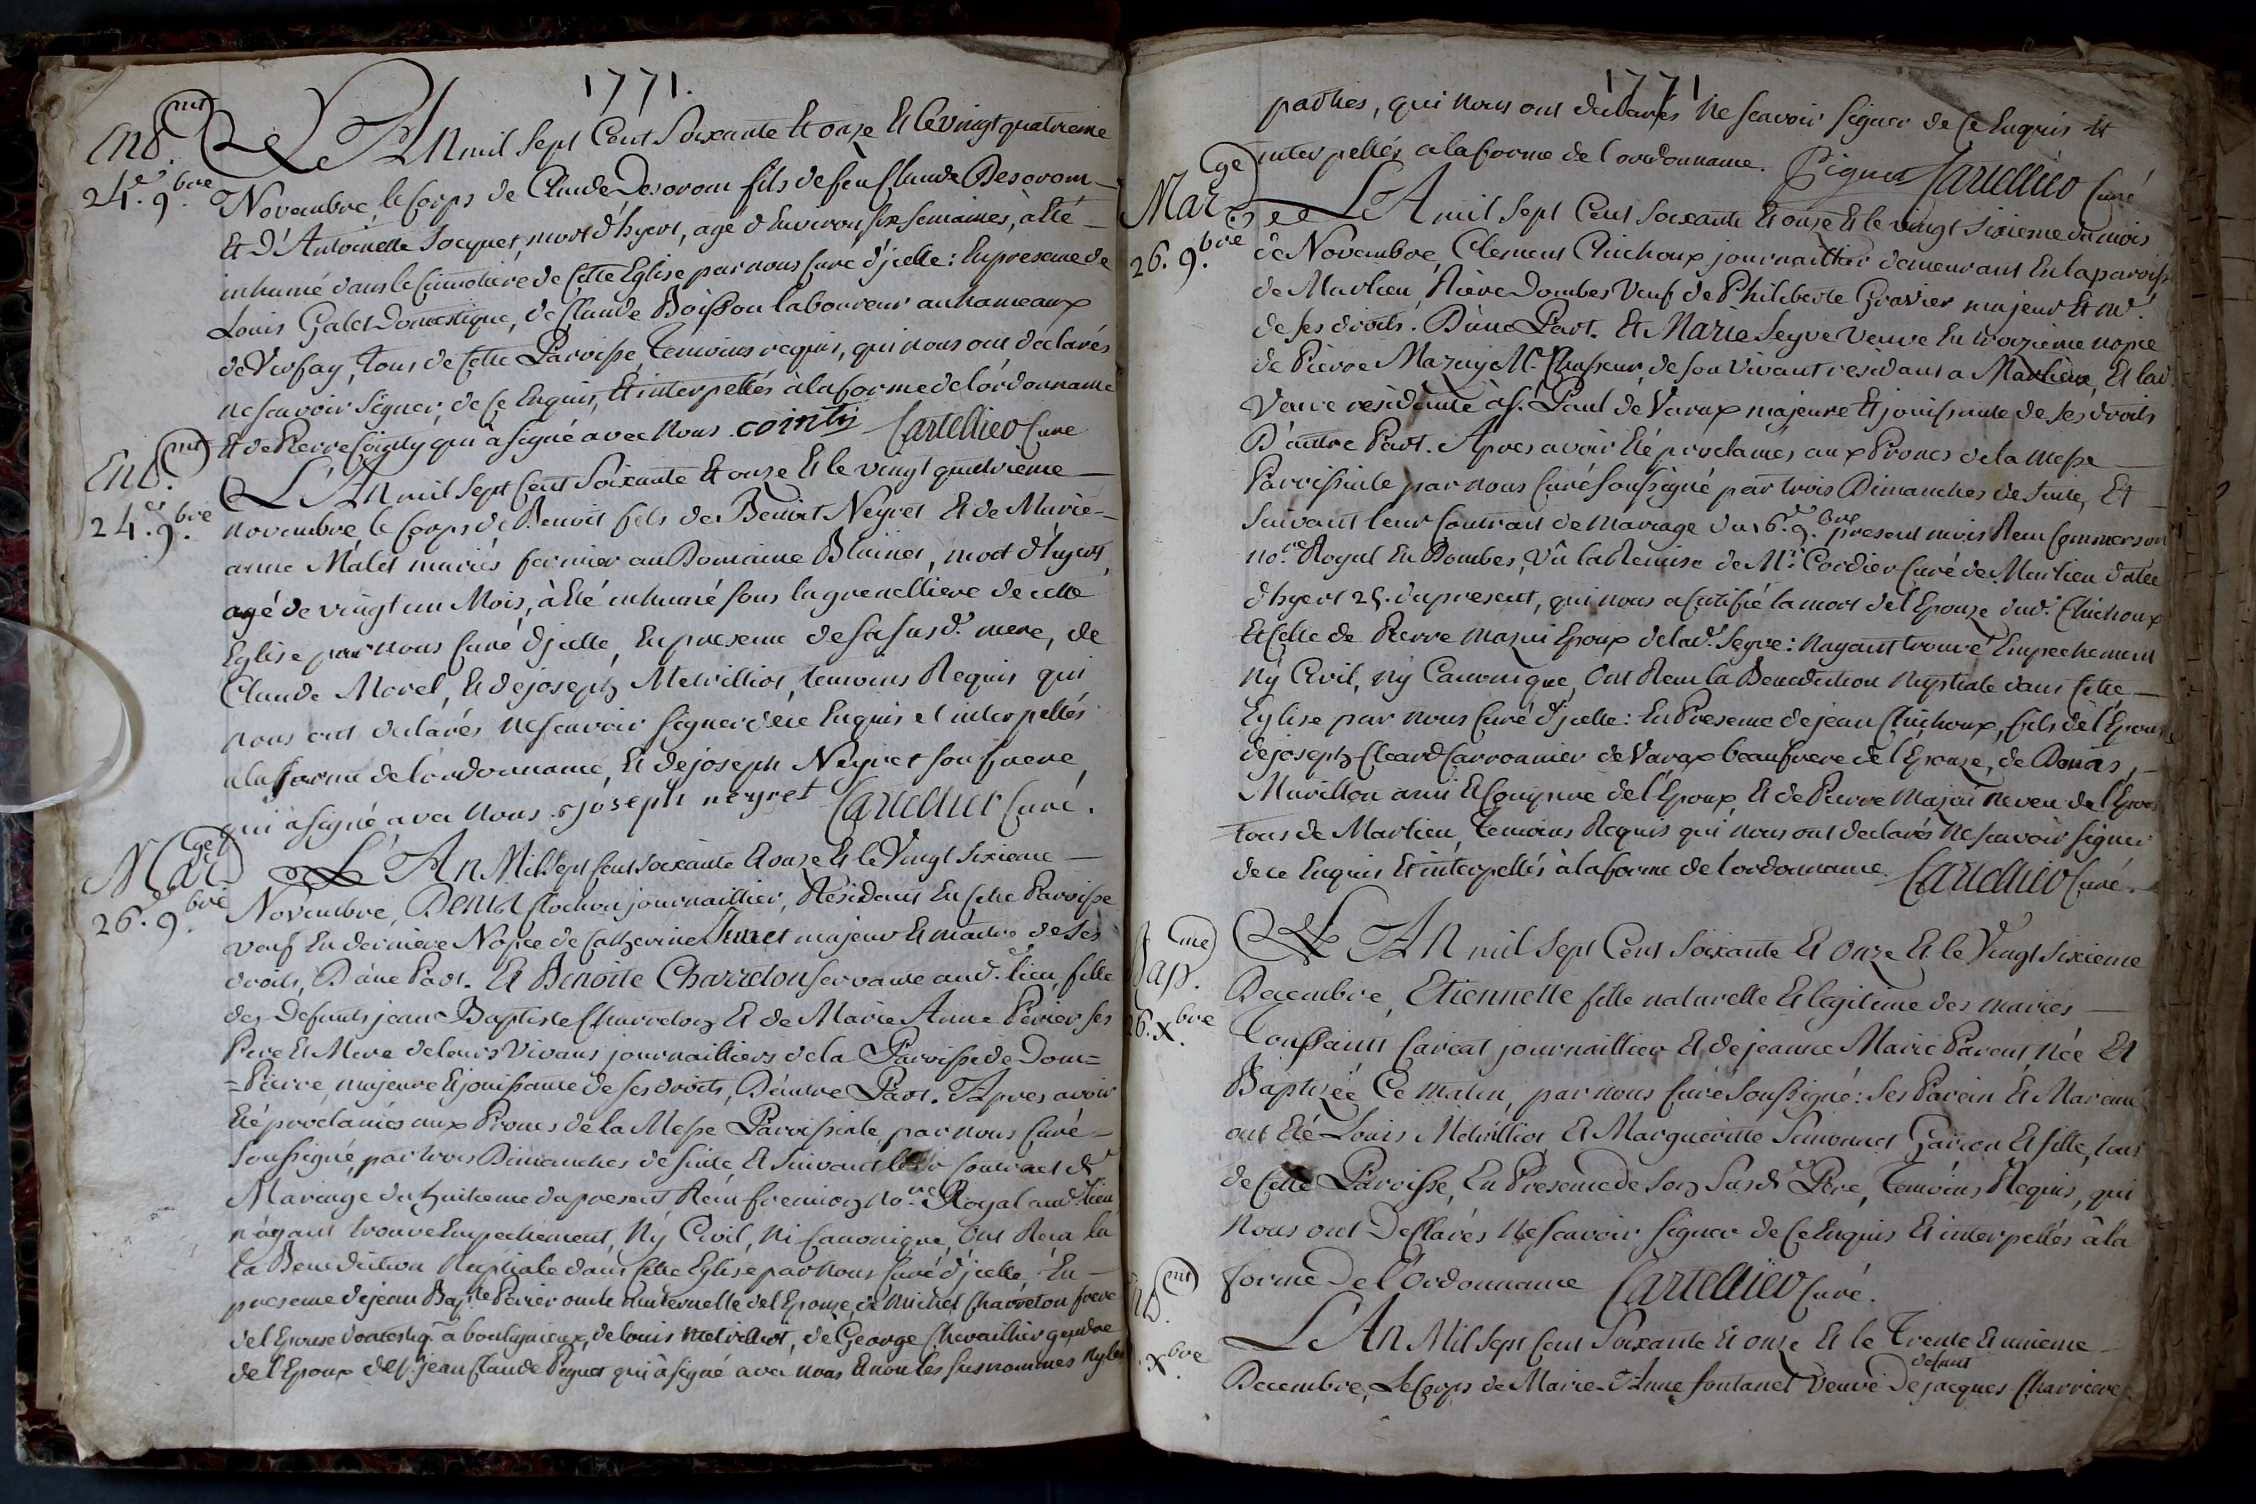 1771.
Ent.mnt
24.e 9.bre
L'An mil sept Cent Soixante Et onze Et le vingt quatrieme
Novembre, le Corps de Claude Desorom fils de feu Claude Desorom
Et D'Antoinette Jocquet, mort d'hyert, agé d'Environ six semaines, à Eté
inhumé dans le Cimetière de Cette Eglise par nous Curé d'jcelle: En presence de
Louis Galet Domestique, de Claude Boisson laboureur au hameaux
de Versay, tous de Cette Paroisse, temoins requis, qui nous ont declarés
ne scavoir Signer, de Ce Enquis, Et interpellés à la forme de l'ordonnance
Et de Pierre Cointy qui à signé avec Nous. cointy Cartellier Curé
Ent.mnt
24.e 9.bre
L'An mil sept Cent Soixante Et onze Et le vingt quatrieme
novembre, le Corps de Benoit fils de Benoit Neyret Et de Marie
anne Malet mariés fermier au Domaine Blaines, mort d'hyert,
agé de vingt un Mois, à Eté inhumé sous la grenettiere de cette
Eglise par nous Curé d'jcelle, En presence de sa susd.e mere, de
Claude Morel, Et de joseph Metrilliot, temoins Requis qui
nous ont declarés ne scavoir signer de ce Enquis et interpellés
a la forme de l'ordonnance, Et de joseph Neyret son frere,
qui à signé avec Nous. joseph neyret Cartellier Curé.
Mar.ge
26.e 9.bre
L'An Mil sept Cent soixante Et onze Et le Vingt sixieme
Novembre, Benoit Clochon journaillier, Residant En Cette Paroisse
veuf En derniere Nopce de Catherine majeur Et maitre de Ses
droits, D'une Part. Et Benoite Charreton servante aud.t lieu, fille
des Defunts jean Baptiste Charreton Et de Marie Anne Perier ses
Pere Et Mere de leurs Vivans journailliers de la Paroisse de Dom=
=Pierre, majeure Et jouissante de ses droits, D'autre Part. Apres avoir
Eté proclamés aux Prones de la Messe Paroissiale, par nous Curé
Soussigné, par trois Dimanches de suite, Et Suivant leur Contract de
Mariage du huitieme du present Recu fremion No.re Royal aud.t lieu
n'ayant trouvé Empechement, Ny Civil, Ni Canonique, Ont Recu la
la Benediction Nuptiale dans Cette Eglise par Nous Curé d'jcelle, En
presence de jean Bap.te Perier oncle maternelle de l'Epouze, de Michel Charreton frere
de l'Epouse domestiq.e a bouligneux, de louis metrilliot, de George Chevaillier gendre
de l'Epoux de S.r jean Claude Piquet qui à signé avec nous Et non les susnommés Ny les
1771
parties, qui nous ont declarés Ne scavoir signer de Ce Enquis Et
interpellés à la forme de l'ordonnance. Piquet Cartellier Curé
Mar.ge
26. 9.bre
L'An mil sept Cent Soixante Et onze Et le vingt sixieme du mois
de Novembre, Clement Cluchoux journaillier demeurant En la paroisse
de Marlieu, Rière Dombes Veuf de Philiberte Gravier majeur Et m.e
de ses droits. D'une Part. Et Marie Seyve veuve En troizieme nopce
de Pierre Mazuy M.e Chasseur de son vivant residant a Marlieux, Et lad.e
veuve residante à S. Paul de Varax majeure Et jouissante de ses droits
D'autre Part. Apres avoir Eté proclamés aux Prones de la messe
Parroissiale par nous Curé soussigné par trois Dimanches de suite, Et
suivant leur Contrat de mariage du 16.e 9.bre present mois Recu Commerson
no.re Royal En Dombes, Vû la Remise de M.r Cordier Curé de Marlieu datée
d'hyert 25. du present, qui nous a Certifié la mort de l'Epouze dud.t Cluchoux
Et Celle de Pierre Mazui Epoux de lad.e Seyve: Nayant trouvé Empechement
Ny Civil, ny Canonique, Ont Recu la Benediction Nuptiale dans Cette
Eglise par nous Curé d'jcelle: En Presence de jean Cluchoux, fils de l'Epoux
de joseph Cleard Carronnier de Varax beaufrere de l'Epouze, de Donas,
Murillon ami Et Compere de l'Epoux Et de Pierre Mazui neveu de l'Epouse
tous de Marlieu, temoins Requis qui nous ont declarés Ne scavoir signer
de ce Enquis Et interpellés à la forme de l'ordonnance. Cartellier Curé.
Bap.me
26. X.bre
L'An mil sept Cent Soixante Et onze Et le Vingt sixieme
Decembre, Etiennette fille naturelle Et legitime des mariés
Toussaint Carcat journaillier Et de jeanne Marie Parent Née Et
Baptisée Ce matin, par nous Curé soussigné: Ses Parein Et Mareine
ont Eté Louis Metrilliot Et Margueritte Simonnet Garçon Et fille, tous
de Cette Paroisse, En Presence de son Susd.t Pere, Temoins Requis, qui
nous ont Declarés Ne scavoir signer de Ce Enquis Et interpellés à la
forme De l'Ordonnance Cartellier Curé.
nt.mnt
X.bre
L'An Mil sept Cent Soixante Et onze Et le Trente Et unieme
Decembre, Le Corps de Marie-Anne fontanel veuve De defunt jacques Charriere